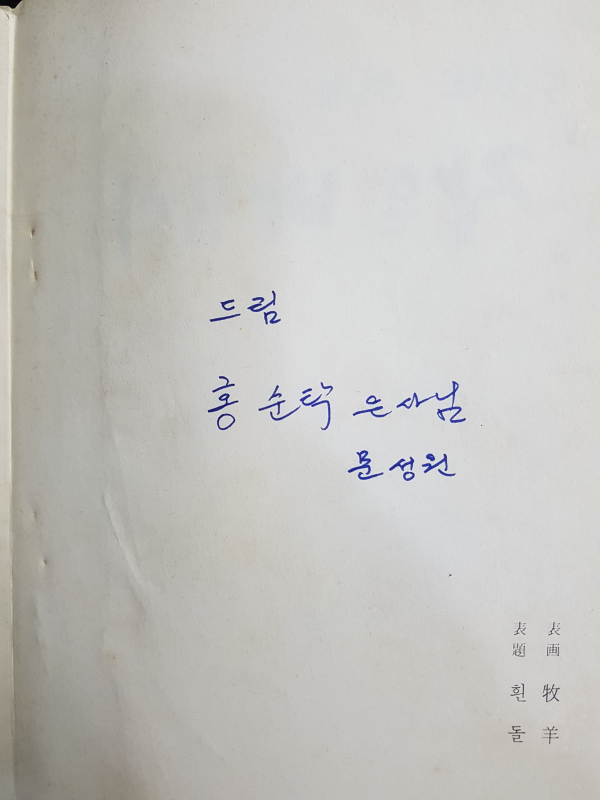 드림
홍순탁 은사님
문성원
表画 牧羊
表題 흰돌